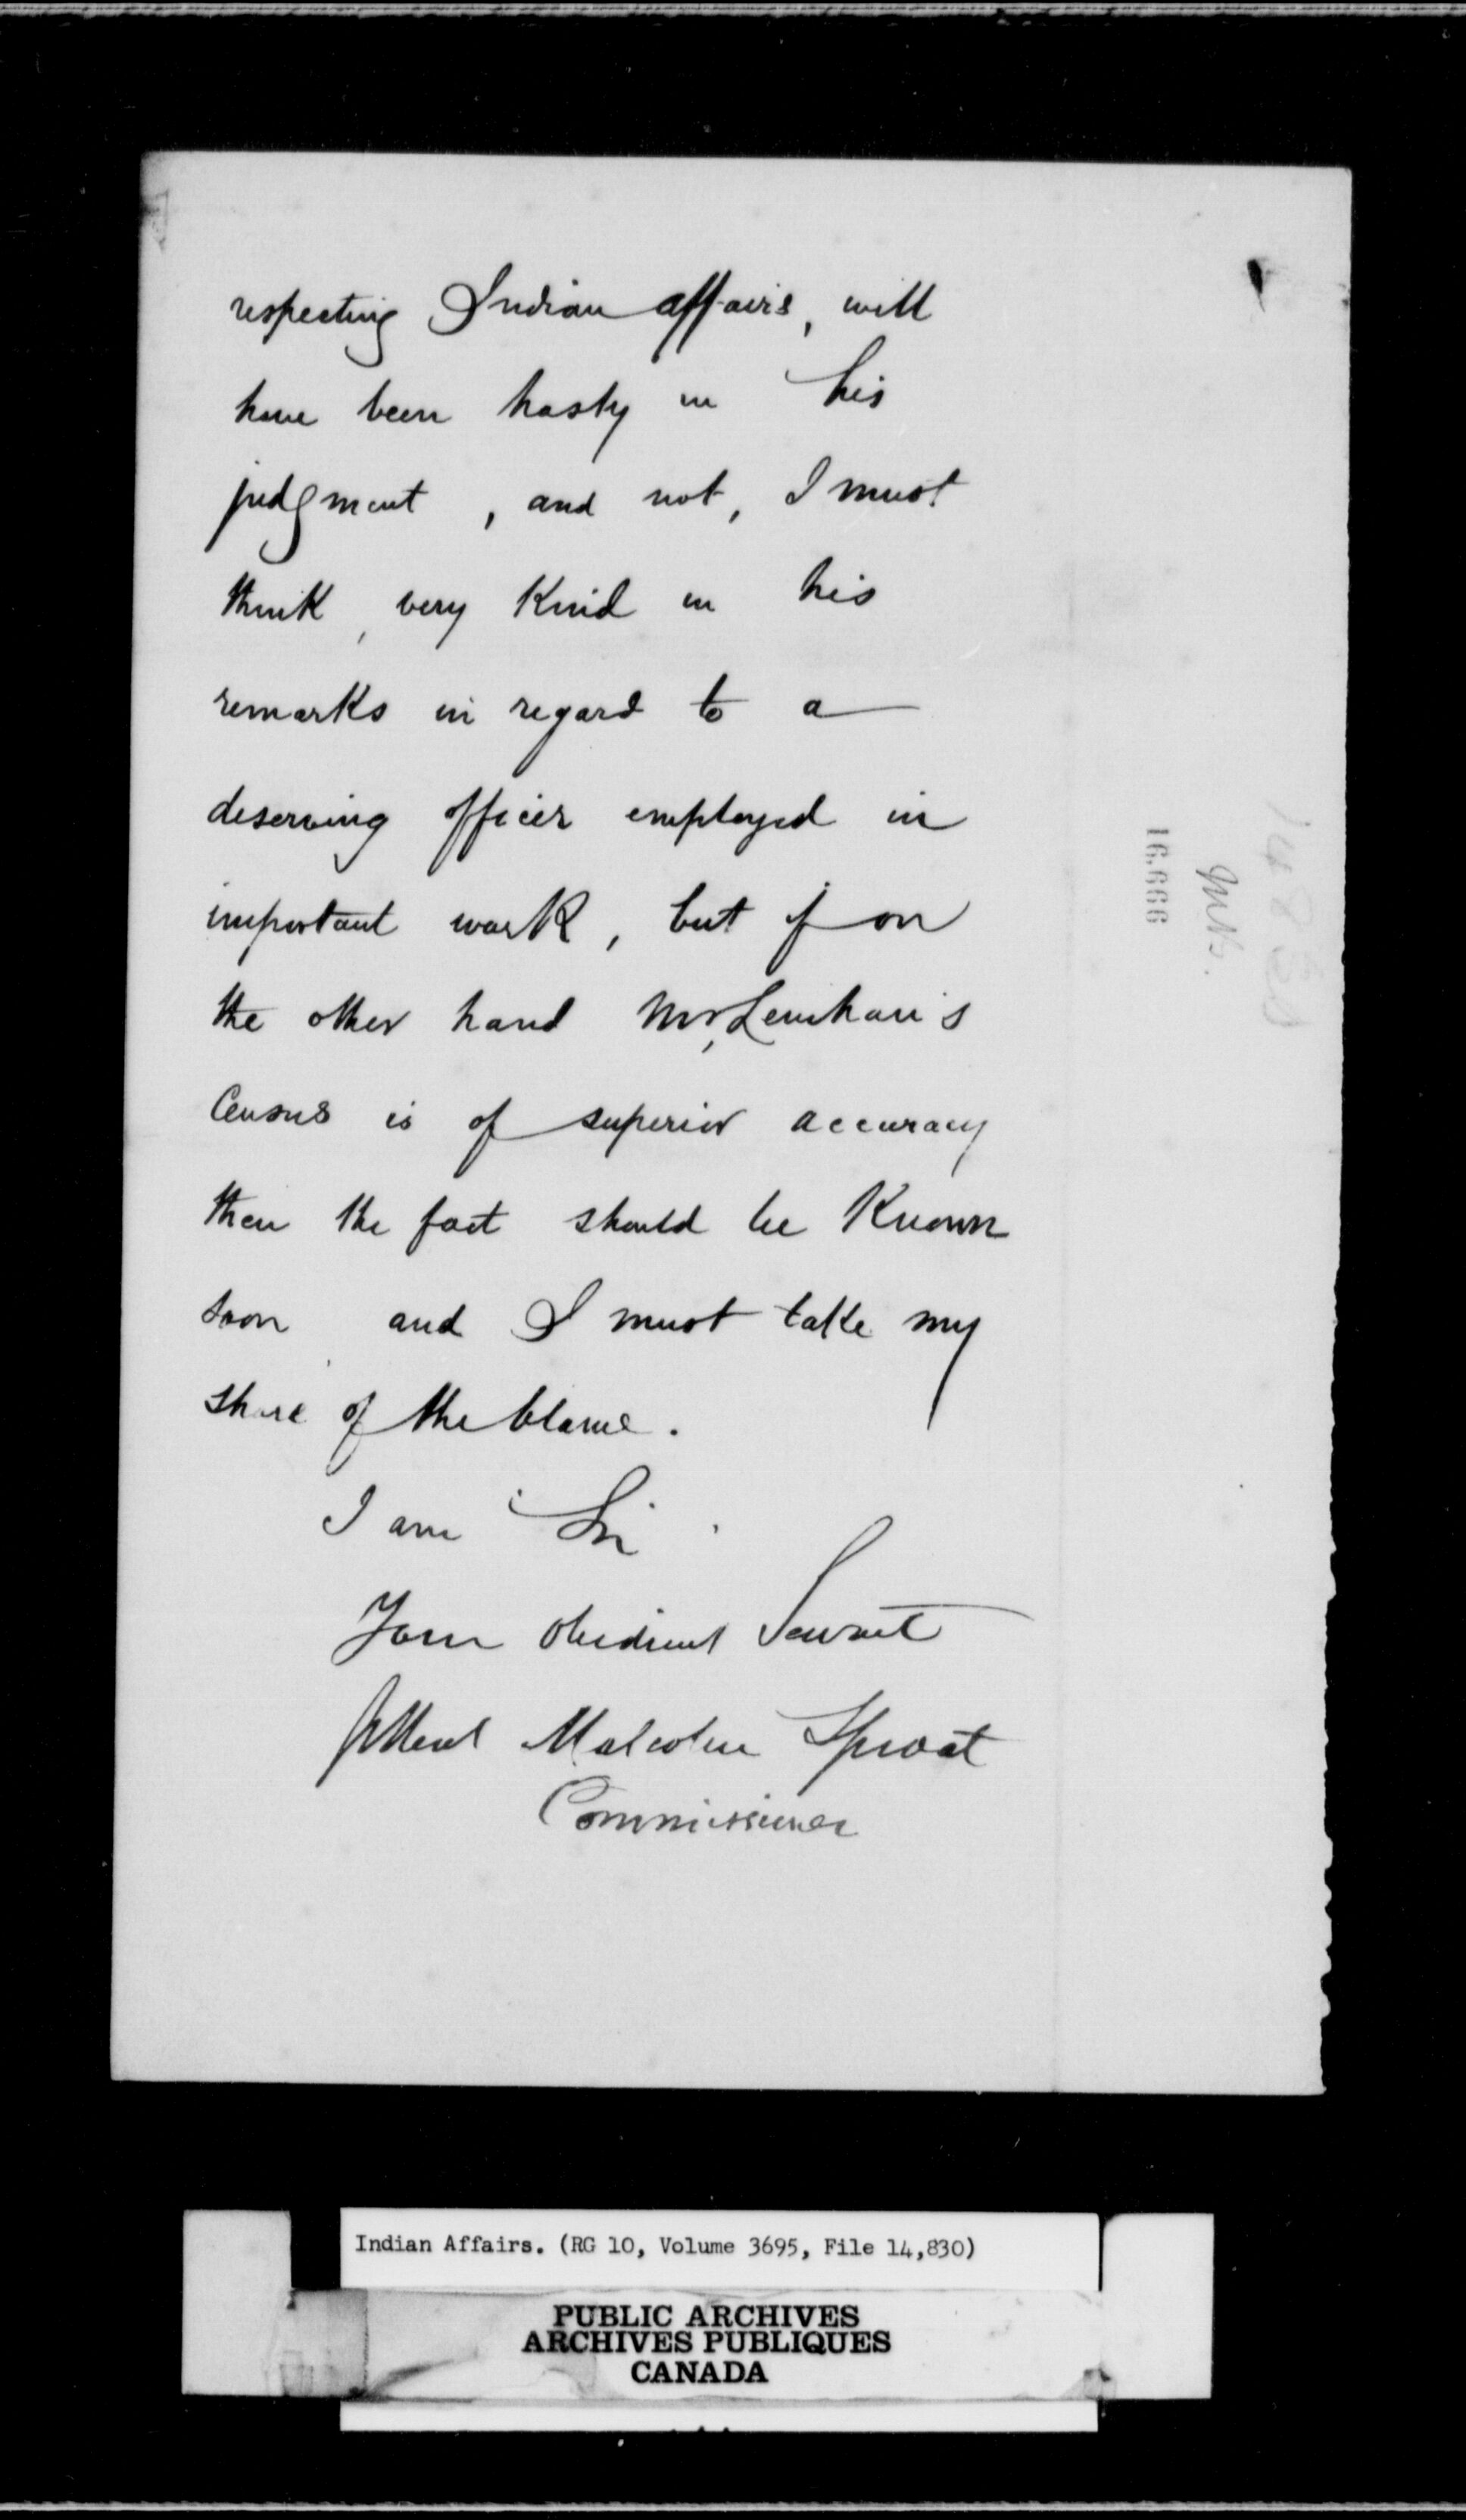 respecting Indian affairs, will
have been hasty in his
judgment, and not, I must
think, very kind in his
remarks in regard to a
deserving officer employed in
important work, but if on
the other hand Mr Lenihan's
Census is of superior accuracy
then the fact should be known
soon and I must take my
share of the blame.
I am Sir
Your obedient Servant
Gilbert Malcolm Sproat
Commissioner
16,666
Indian Affairs. (RG 10, Volume 3695, File 14,830)
PUBLIC ARCHIVES
ARCHIVES PUBLIQUES
CANADA